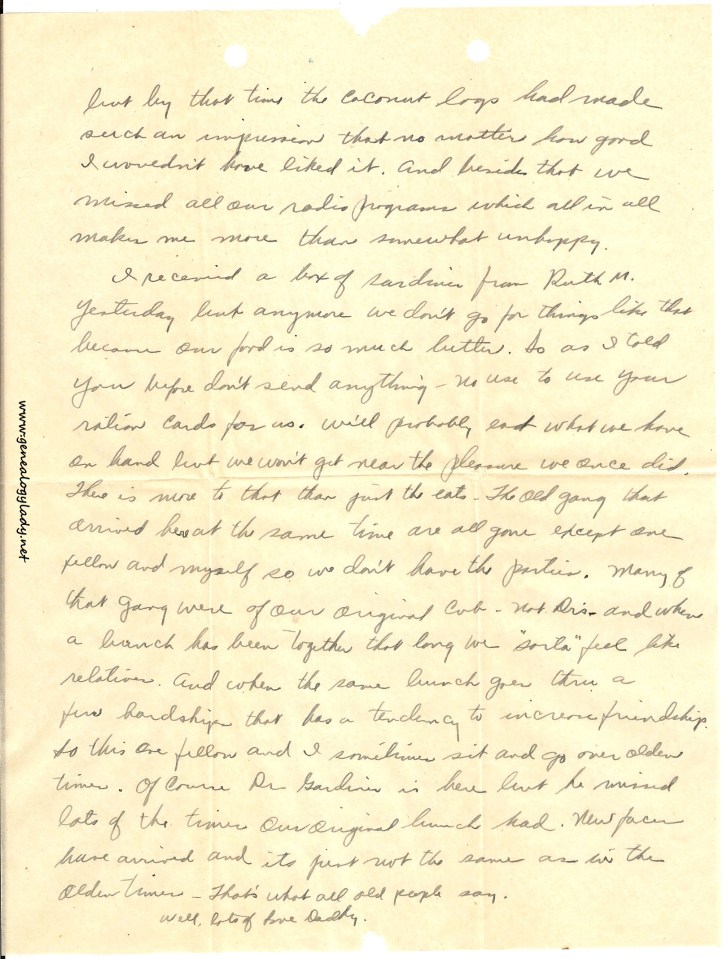 but by that time the coconut logs had made
such an impression that no matter how good
I wouldn't have liked it. And besides that we
missed all our radio programs which all in all
makes me more than somewhat unhappy.
I received a box of sardines from Ruth M.
yesterday but anymore we don't go for things like that
because our food is so much better. So as I told
you before don't send anything - no use to use your
ration cards for us. We'll probably eat what we have
on hand but we won't get near the pleasure we once did.
There is more to that than just the eats - The old gang that
arrived here at the same time are all gone except one
fellow and myself so we don't have the parties. Many of
that gang were of our original Cub - not Drs - and when
a bunch has been together that long we "sorta" feel like
relatives. And when the same bunch goes thru a
few hardships that has a tendency to increase friendship.
So this one fellow and I sometimes sit and go over olden
times. Of course Dr Gardiner is here but he missed
lots of the times our original bunch had. New faces
have arrived and its just not the same as in the
olden times - That's what all old people say.
Well, lots of love Daddy.
www.genealogylady.net